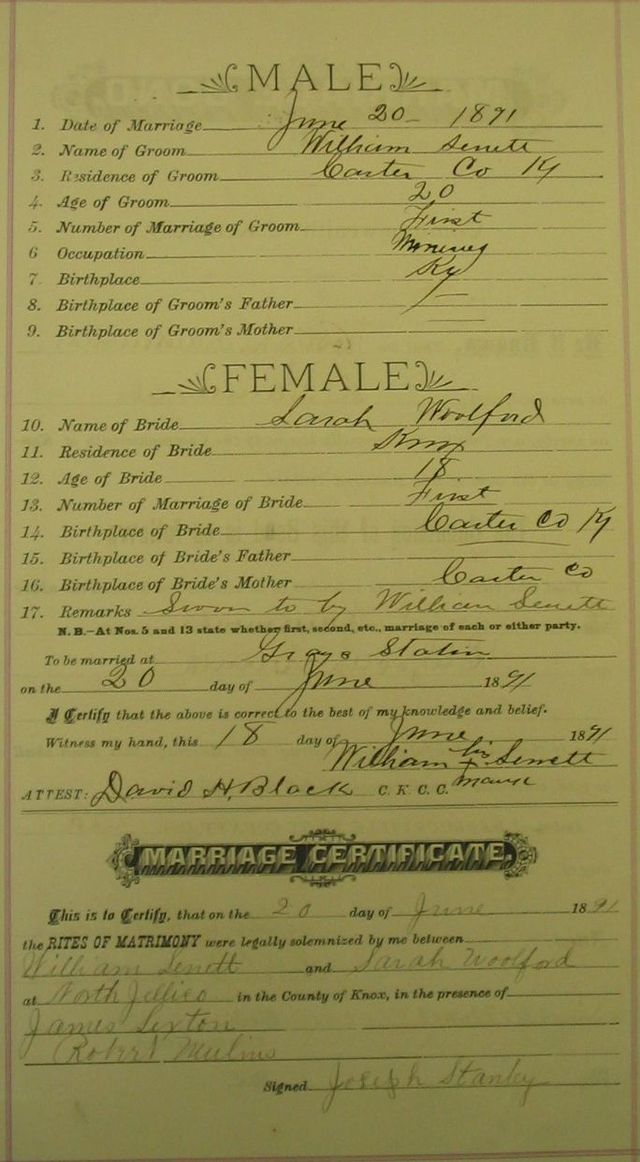 MALE
1. Date of Marriage June 20 - 1891
2. Name of Groom William Senett
3. Residence of Groom Carter Co Ky
4. Age of Groom 20
5. Number of Marriage of Groom First
6 Occupation Mining
7 Birthplace Ky
8. Birthplace of Groom's Father
9. Birthplace of Groom's Mother
FEMALE
10. Name of Bride Sarah Woolford
11. Residence of Bride Knox
12. Age of Bride 18
13. Number of Marriage of Bride First
14. Birthplace of Bride Carter Co Ky
15. Birthplace of Bride's Father
16. Birthplace of Bride's Mother Carter Co
17. Remarks Sworn to by William Senett
N.B.—At Nos. 5 and 13 state whether first, second, etc., marriage of each or either party.
To be married at Grays Station
on the 20 day of June 1891
I Certify that the above is correct to the best of my knowledge and belief.
Witness my hand, this 18 day of June 1891
William his x mark Senett
ATTEST: David H. Black C. K. C. C.
MARRIAGE CERTIFICATE.
This is to Certify, that on the 20 day of June 1891
the RITES OF MATRIMONY were legally solemnized by me between
William Senett and Sarah Woolford
at North Jellico in the County of Knox, in the presence of
James Sexton
Robert Mulins
Signed Joseph Stanley